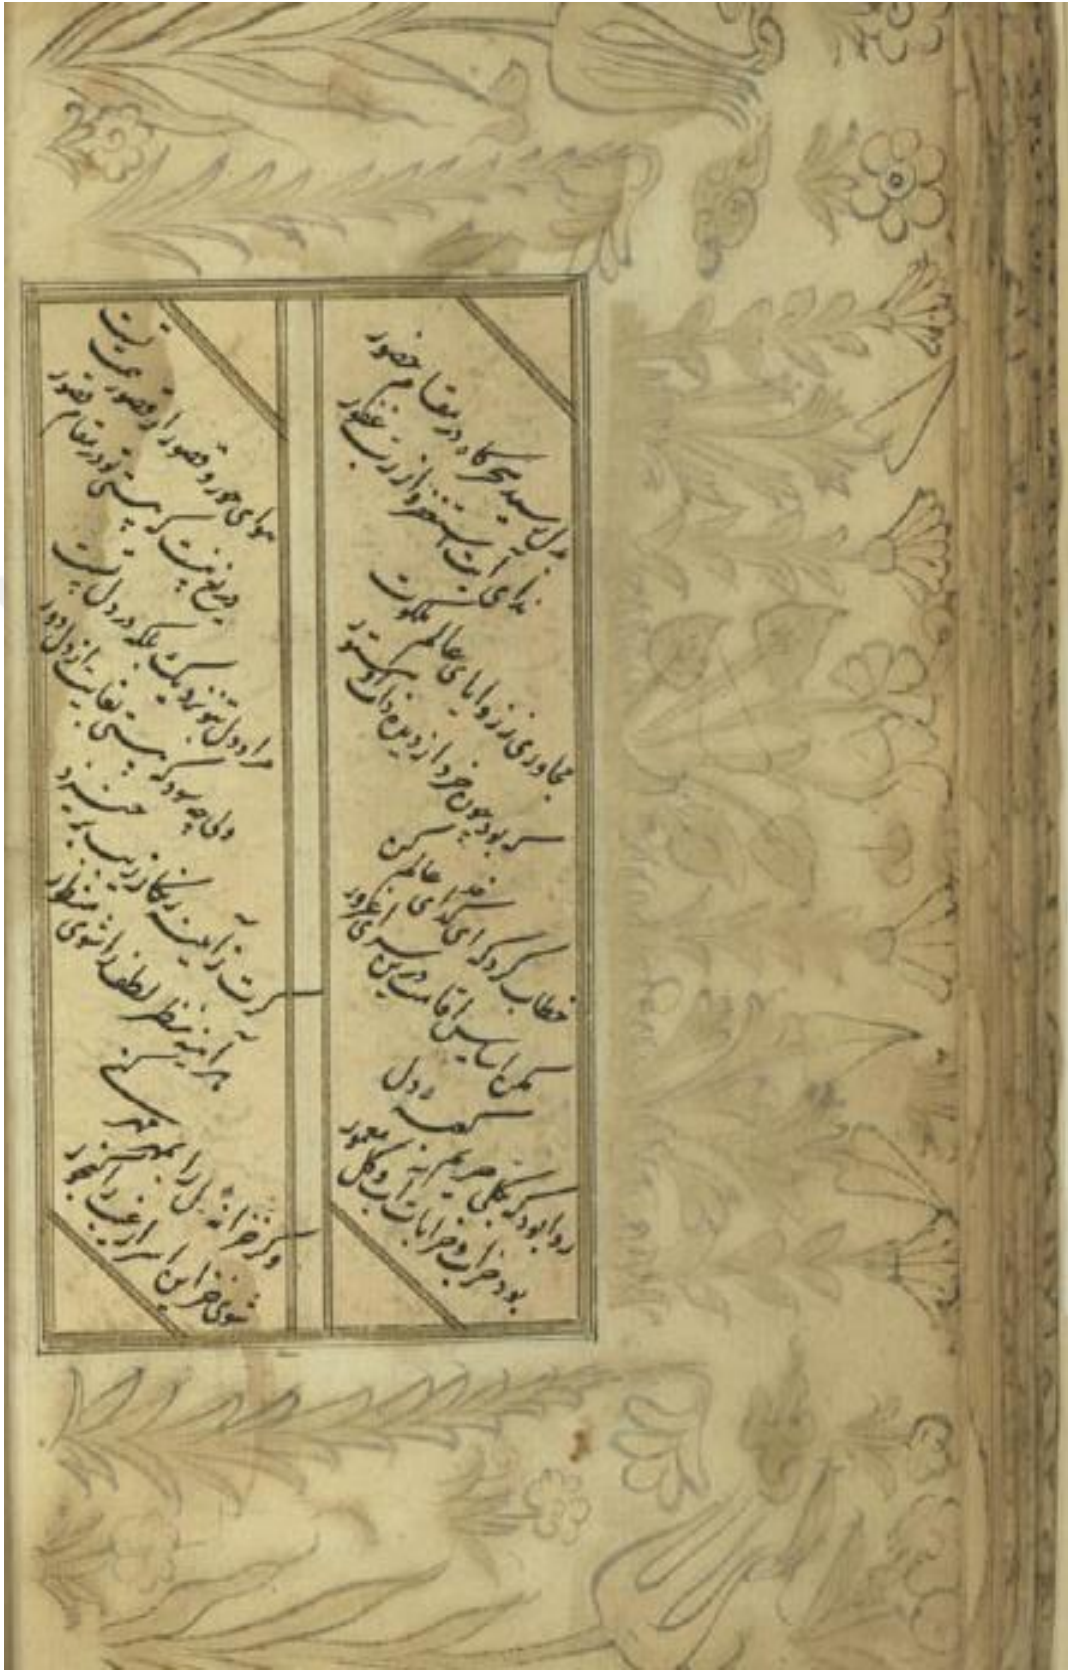 بدل رسید سحرگاه در مقام حضور
ندای آیت استغفروا ز رب غفور
مجاوری ز زوایای عالم ملکوت
که بود چون خرد از دیده ذات او مستور
خطاب کرد که ای کدخدای عالم کن
مکن اساس اقامت درین سرای غرور
روا بود که بکلی حریم کعبه دل
بود خراب و خرابات آب و گل معمور
هوای حور و قصور از قصور همت تست
دریغ نیست که هستی تو در مقام قصور
مرا دل بتو نزدیکست بلکه در دل تست
ولی چه سود که هستی بغایت از دل دور
گرت ز آینه زنگار ریب برخیزد
هر آینه نظر لطف را شوی منظور
وگر خزانه دل را بمهر مهر کنی
شوی خزاین اسرار غیب را گنجور